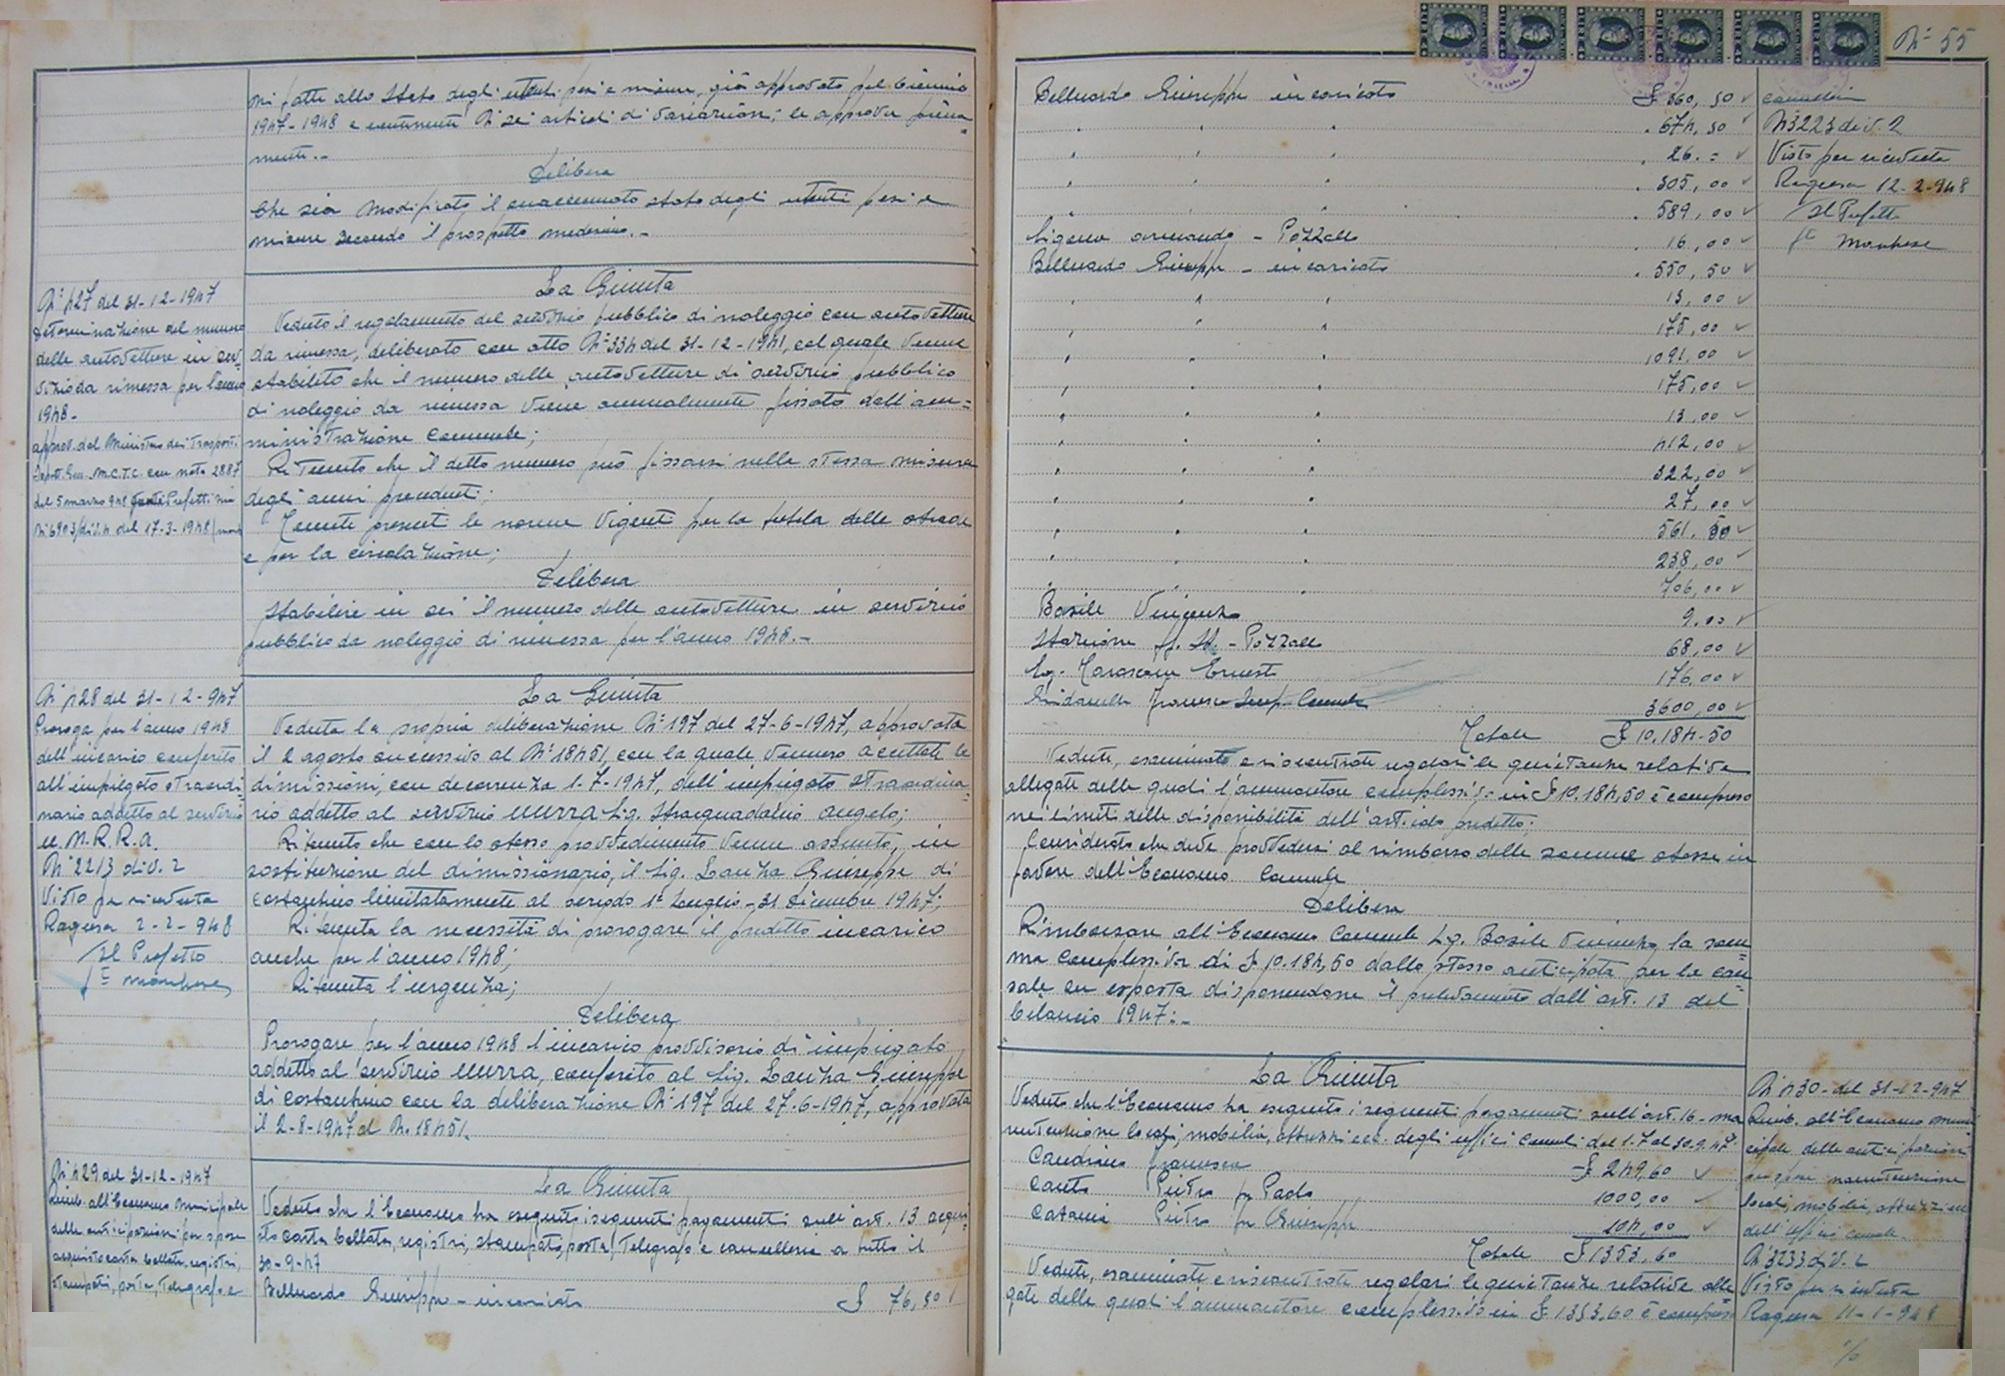 ni fatte allo stato degli utenti pesi e misure, già approvato pel biennio
1947-1948 e contenente N. sei articoli di variazioni; le approva piena-
mente.-
Delibera
Che sia modificato il suaccennato stato degli utenti pesi e
misure secondo il prospetto medesimo.-
N° 427 del 31-12-1947
Determinazione del numero
delle autovetture in ser-
vizio da rimessa per l'anno
1948-
approv. dal Ministero dei Trasporti
Ispett. Gen. M.C.T.C. con nota 2887
del 5 marzo 948 Prefettizia
N. 6903/div. 4 del 17-3-1948
La Giunta
Veduto il regolamento del servizio pubblico di noleggio con autovetture
da rimessa, deliberato con atto N° 334 del 31-12-1941, col quale venne
stabilito che il numero delle autovetture di servizio pubblico
di noleggio da rimessa viene annualmente fissato dall'am-
ministrazione Comunale;
Ritenuto che il detto numero può fissarsi nella stessa misura
degli anni precedenti;
Tenute presenti le norme vigenti per la tutela delle strade
e per la circolazione;
Delibera
Stabilire in sei il numero delle autovetture in servizio
pubblico da noleggio di rimessa per l'anno 1948.-
N° 428 del 31-12-947
Proroga per l'anno 1948
dell'incarico conferito
all'impiegato straordi-
nario addetto al servizio
U.N.R.R.A.
N° 2213 div. 2
Visto per ricevuta
Ragusa 2-2-948
Il Prefetto
La Giunta
Veduta la propria deliberazione N° 197 del 27-6-1947, approvata
il 2 agosto successivo al N° 18451, con la quale vennero accettate le
dimissioni, con decorrenza 1-7-1947, dell'impiegato straordina-
rio addetto al servizio UNRRA Sig. Stracquadanio Angelo;
Ritenuto che con lo stesso provvedimento venne assunto, in
sostituzione del dimissionario, il Sig. Lauha Giuseppe di
Costantino limitatamente al periodo 1° Luglio-31 dicembre 1947;
Ritenuta la necessità di prorogare il predetto incarico
anche per l'anno 1948;
Ritenuta l'urgenza;
Delibera
Prorogare per l'anno 1948 l'incarico provvisorio di impiegato
addetto al servizio UNRRA, conferito al Sig. Lauha Giuseppe
di Costantino con la deliberazione N° 197 del 27-6-1947, approvata
il 2-8-1947 al N. 18451.
N° 429 del 31-12-1947
Rimb. all'Economo Municipale
delle anticipazioni per spese
acquisto carta bollata, registri,
stampati, posta, Telegrafo e
La Giunta
Veduto che l'Economo ha eseguito i seguenti pagamenti sull'art. 13 acqui-
sto carta bollata, registri, stampati, posta, Telegrafo e cancelleria a tutto il
30-9-47
Belluardo Giuseppe - incaricato £ 76,50
N° 55
Belluardo Giuseppe incaricato £ 360,50
" " " 674,50
" " " 26.=
" " " 305,00
" " " 589,00
Armando - Pozzallo 16,00
Belluardo Giuseppe - incaricato 550,50
" " " 13,00
" " " 175,00
" " " 1091,00
" " " 175,00
" " " 13,00
" " " 412,00
" " " 322,00
" " " 27,00
" " " 561,50
" " " 238,00
" " " 706,00
Basile Vincenzo 9,00
Stazione FF. SS. - Pozzallo 68,00
Sig. Ernesto 176,00
Francesco Comunale 3600,00
Totale £ 10.184-50
cancelleria
N 3223 div. 2
Visto per ricevuta
Ragusa 12-2-948
Il Prefetto
Vedute, esaminate e riscontrate regolari le quietanze relative
allegate delle quali l'ammontare complessivo in £ 10.184,50 è compreso
nei limiti delle disponibilità dell'articolo predetto;
Considerato che deve provvedersi al rimborso delle somme stesse in
favore dell'Economo Comunale
Delibera
Rimborsare all'Economo Comunale Sig. Basile Vincenzo la som-
ma complessiva di £ 10.184,50 dallo stesso anticipata per la cau-
sale su esposta disponendone il prelevamento dall'art. 13 del
bilancio 1947:-
La Giunta
Veduto che l'Economo ha eseguito i seguenti pagamenti sull'art. 16 - ma
nutenzione locali, mobilia, attrezzi ecc. degli uffici Comunali dal 1-7 al 30-9-47.
Francesca £ 249,60
Pietro fu Paolo 1000,00
Catania Pietro fu Giuseppe 104,00
Totale £ 1353,60
Vedute, esaminate e riscontrate regolari le quietanze relative alle
gate delle quali l'ammontare complessivo in £ 1353,60 è compreso
N° 430 - del 31-12-947
Rimb. all'Economo muni
cipale delle anticipazioni
per spese manutenzione
locali, mobilia, attrezzi ecc
dell'uffici comunale.
N 3233 div. 2
Visto per ricevuta
Ragusa 11-1-948
%